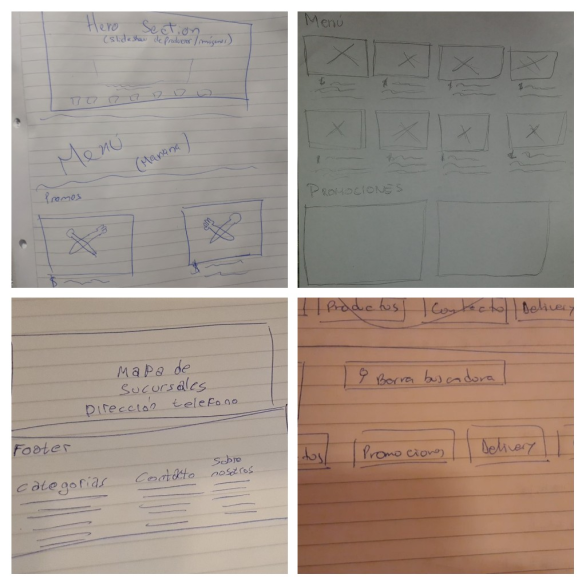 Hero Section
Menú
Promos
$
Menú
$
$
$
$
$
$
$
PROMOCIONES
Mapa de
Sucursales
Dirección telefono
Footer
Categorias
Contacto
Sobre
nosotros
Productos
Contacto
Delivery
Barra buscadora
Promociones
Delivery